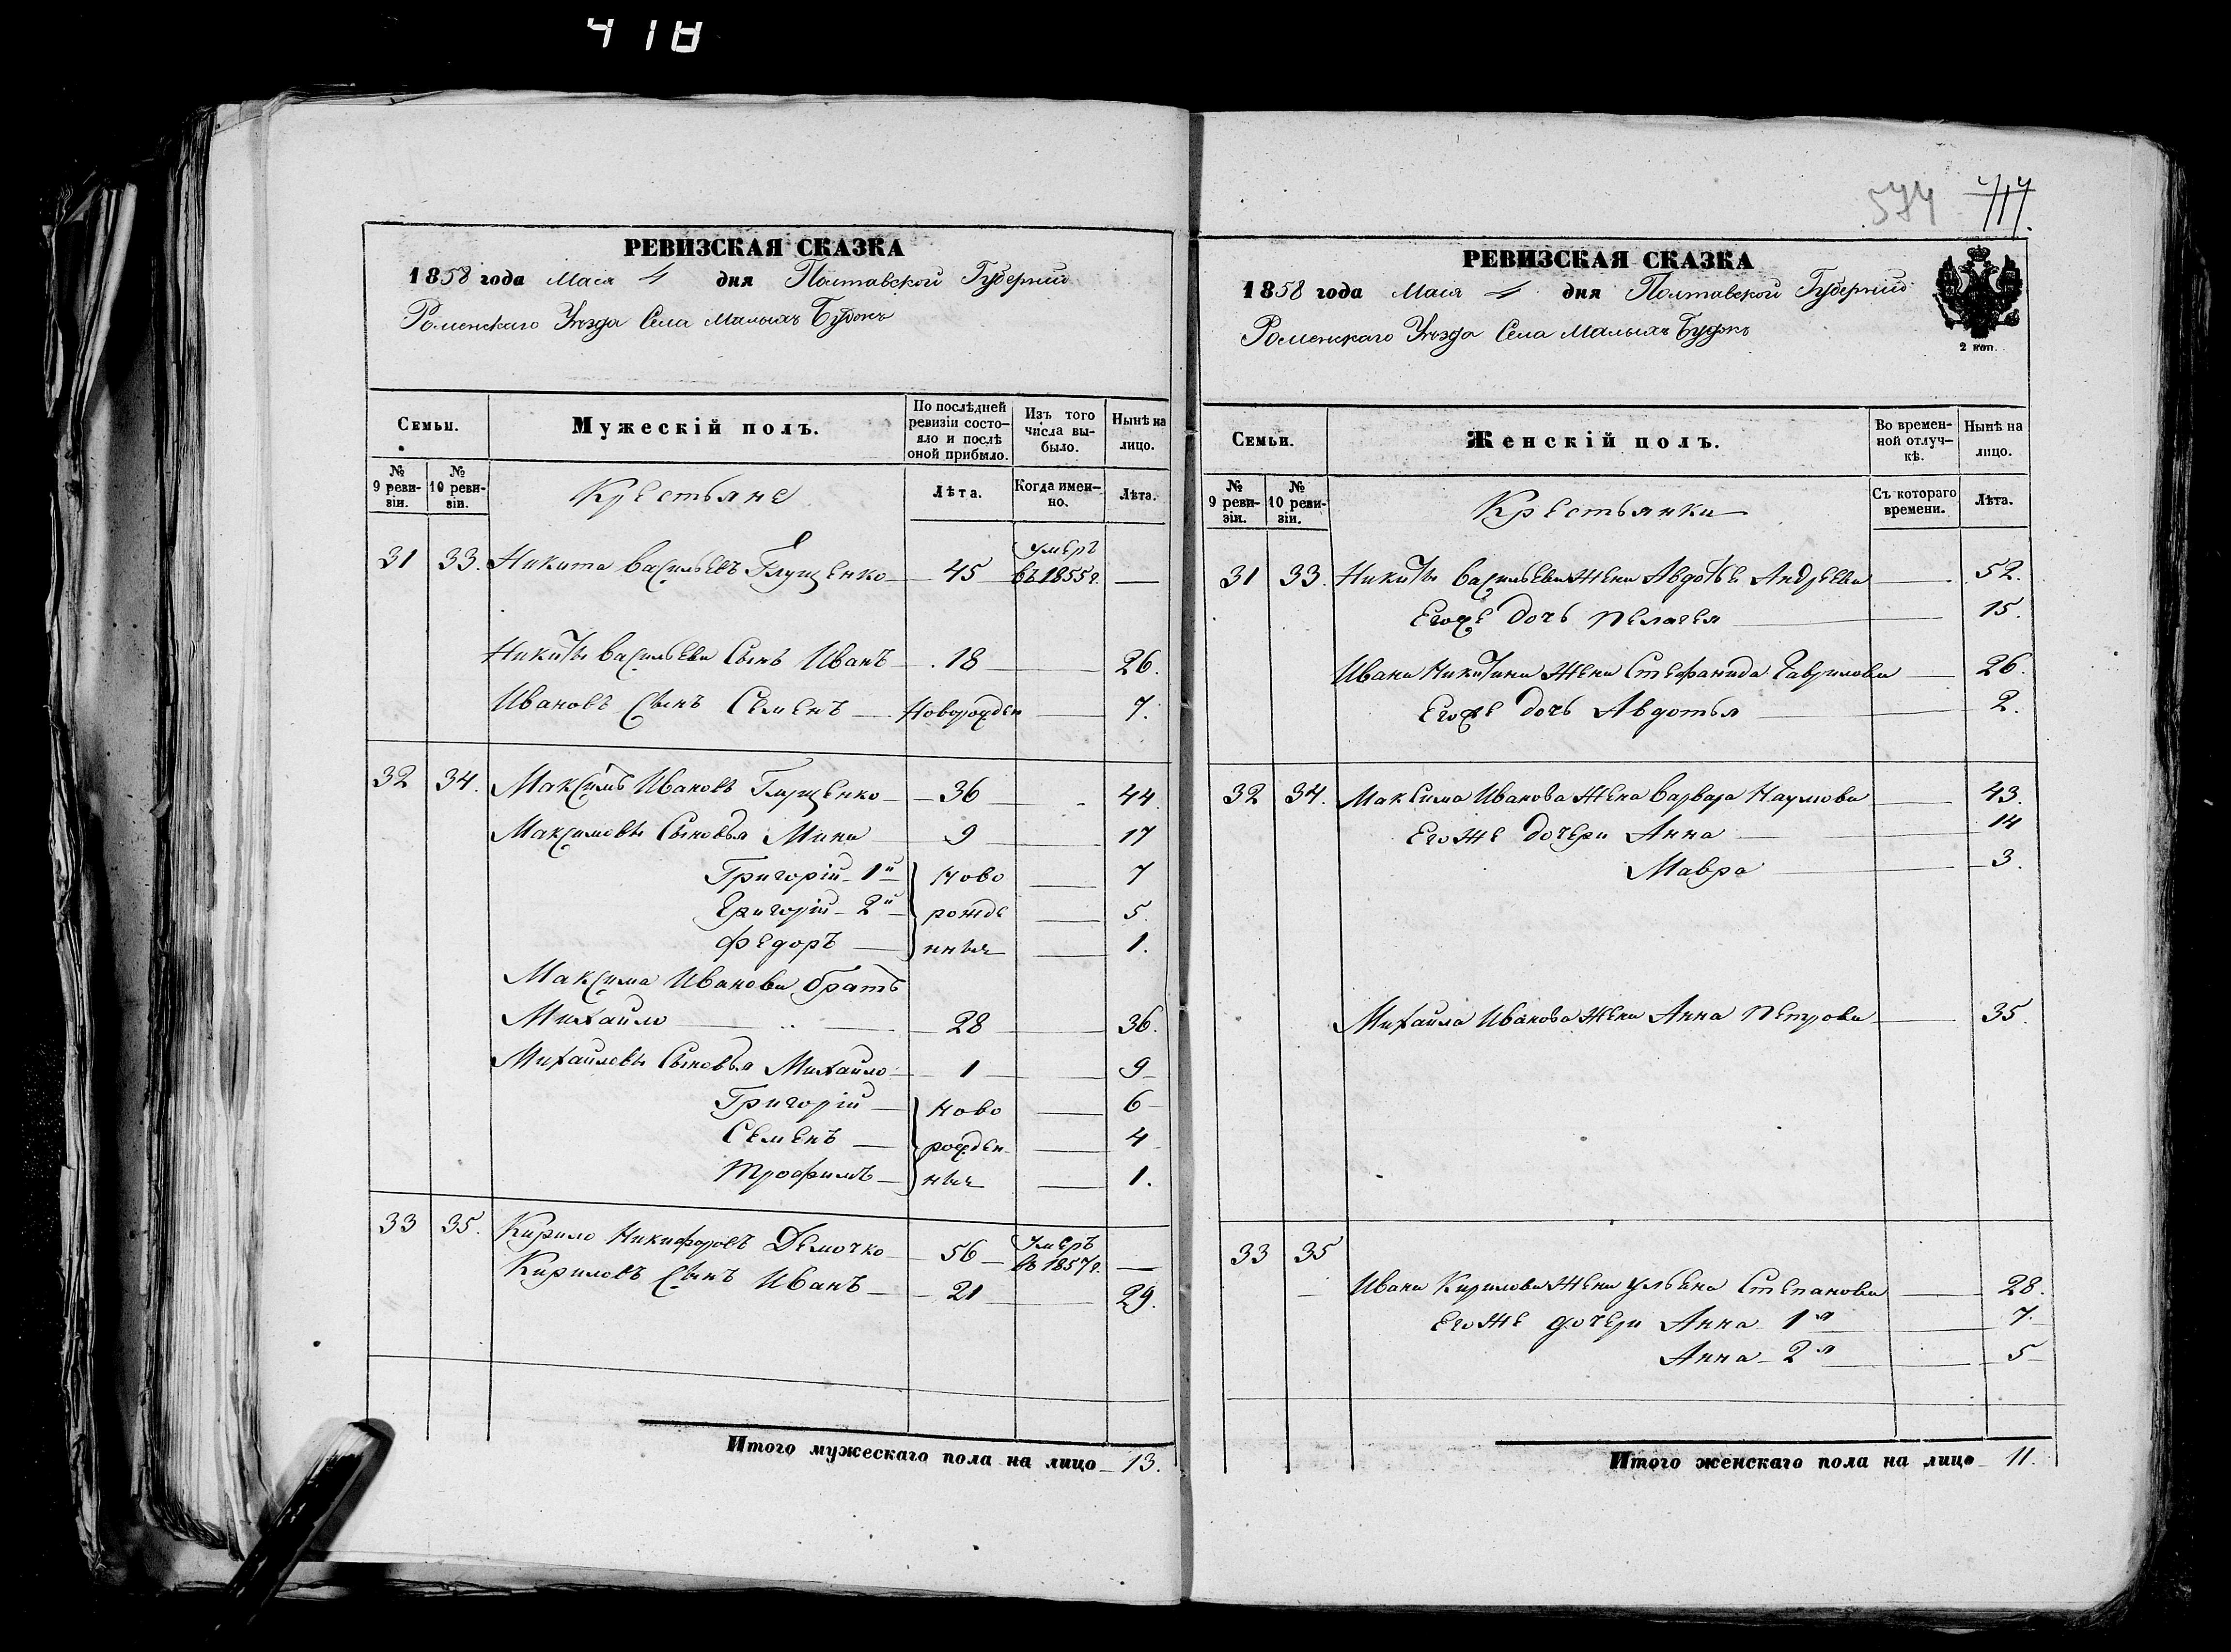 418
РЕВИЗСКАЯ СКАЗКА
1858 года Мая 4 дня Полтавской Губернии
Роменскаго Уезда Села Малыхъ Будокъ
Семьи.
Мужескій полъ.
По послѣдней ревизіи состо-
яло и послѣ оной прибыло.
Изъ того числа вы-
было.
Нынѣ на лицо.
№ 9 реви-
зіи.
№ 10 реви-
зіи.
Крестьяне
Лѣта.
Когда имен-
но.
Лѣта.
31 33. Никита Васильевъ Глущенко 45 умеръ въ 1855 г. —
Никиты Васильева Сынъ Иванъ 18 — 26.
Ивановъ Сынъ Семенъ Новорожден — 7.
32 34. Максимъ Ивановъ Глущенко 36 44
Максимовы Сыновья Мина 9 — 17
Григорій 1й Ново — 7
Григорій 2й рожде — 5
Федоръ нныя — 1.
Максима Иванова братъ
Михайло 28 — 36.
Михайловы Сыновья Михайло 1 — 9
Григорій Ново — 6
Семенъ рожден — 4
Трофимъ ныя — 1.
33 35. Кирило Никифоровъ Демочко 56 Умеръ въ 1857 г. —
Кириловъ Сынъ Иванъ 21 — 29.
Итого мужескаго пола на лицо 13.
574 417.
РЕВИЗСКАЯ СКАЗКА
1858 года Мая 4 дня Полтавской Губернии
Роменскаго Уезда Села Малыхъ Будокъ
2 коп.
Семьи.
Женскій полъ.
Во времен-
ной отлуч-
кѣ.
Нынѣ на лицо.
№ 9 реви-
зіи.
№ 10 реви-
зіи.
Крестьянки
Съ котораго времени.
Лѣта.
31 33. Никиты Васильева Жена Авдотье Андреева — 52.
Егоже дочь Пелагея — 15.
Ивана Никитина Жена Стефанида Гаврилова — 26.
Егоже дочь Авдотья — 2.
32 34. Максима Иванова Жена Варвара Наумова — 43.
Егоже дочери Анна — 14
Мавра — 3.
Михаила Иванова Жена Анна Петрова — 35.
33 35
Ивана Кирилова Жена Ульяна Степанова — 28.
Егоже дочери Анна 1я — 7.
Анна 2я — 5
Итого женскаго пола на лицо 11.